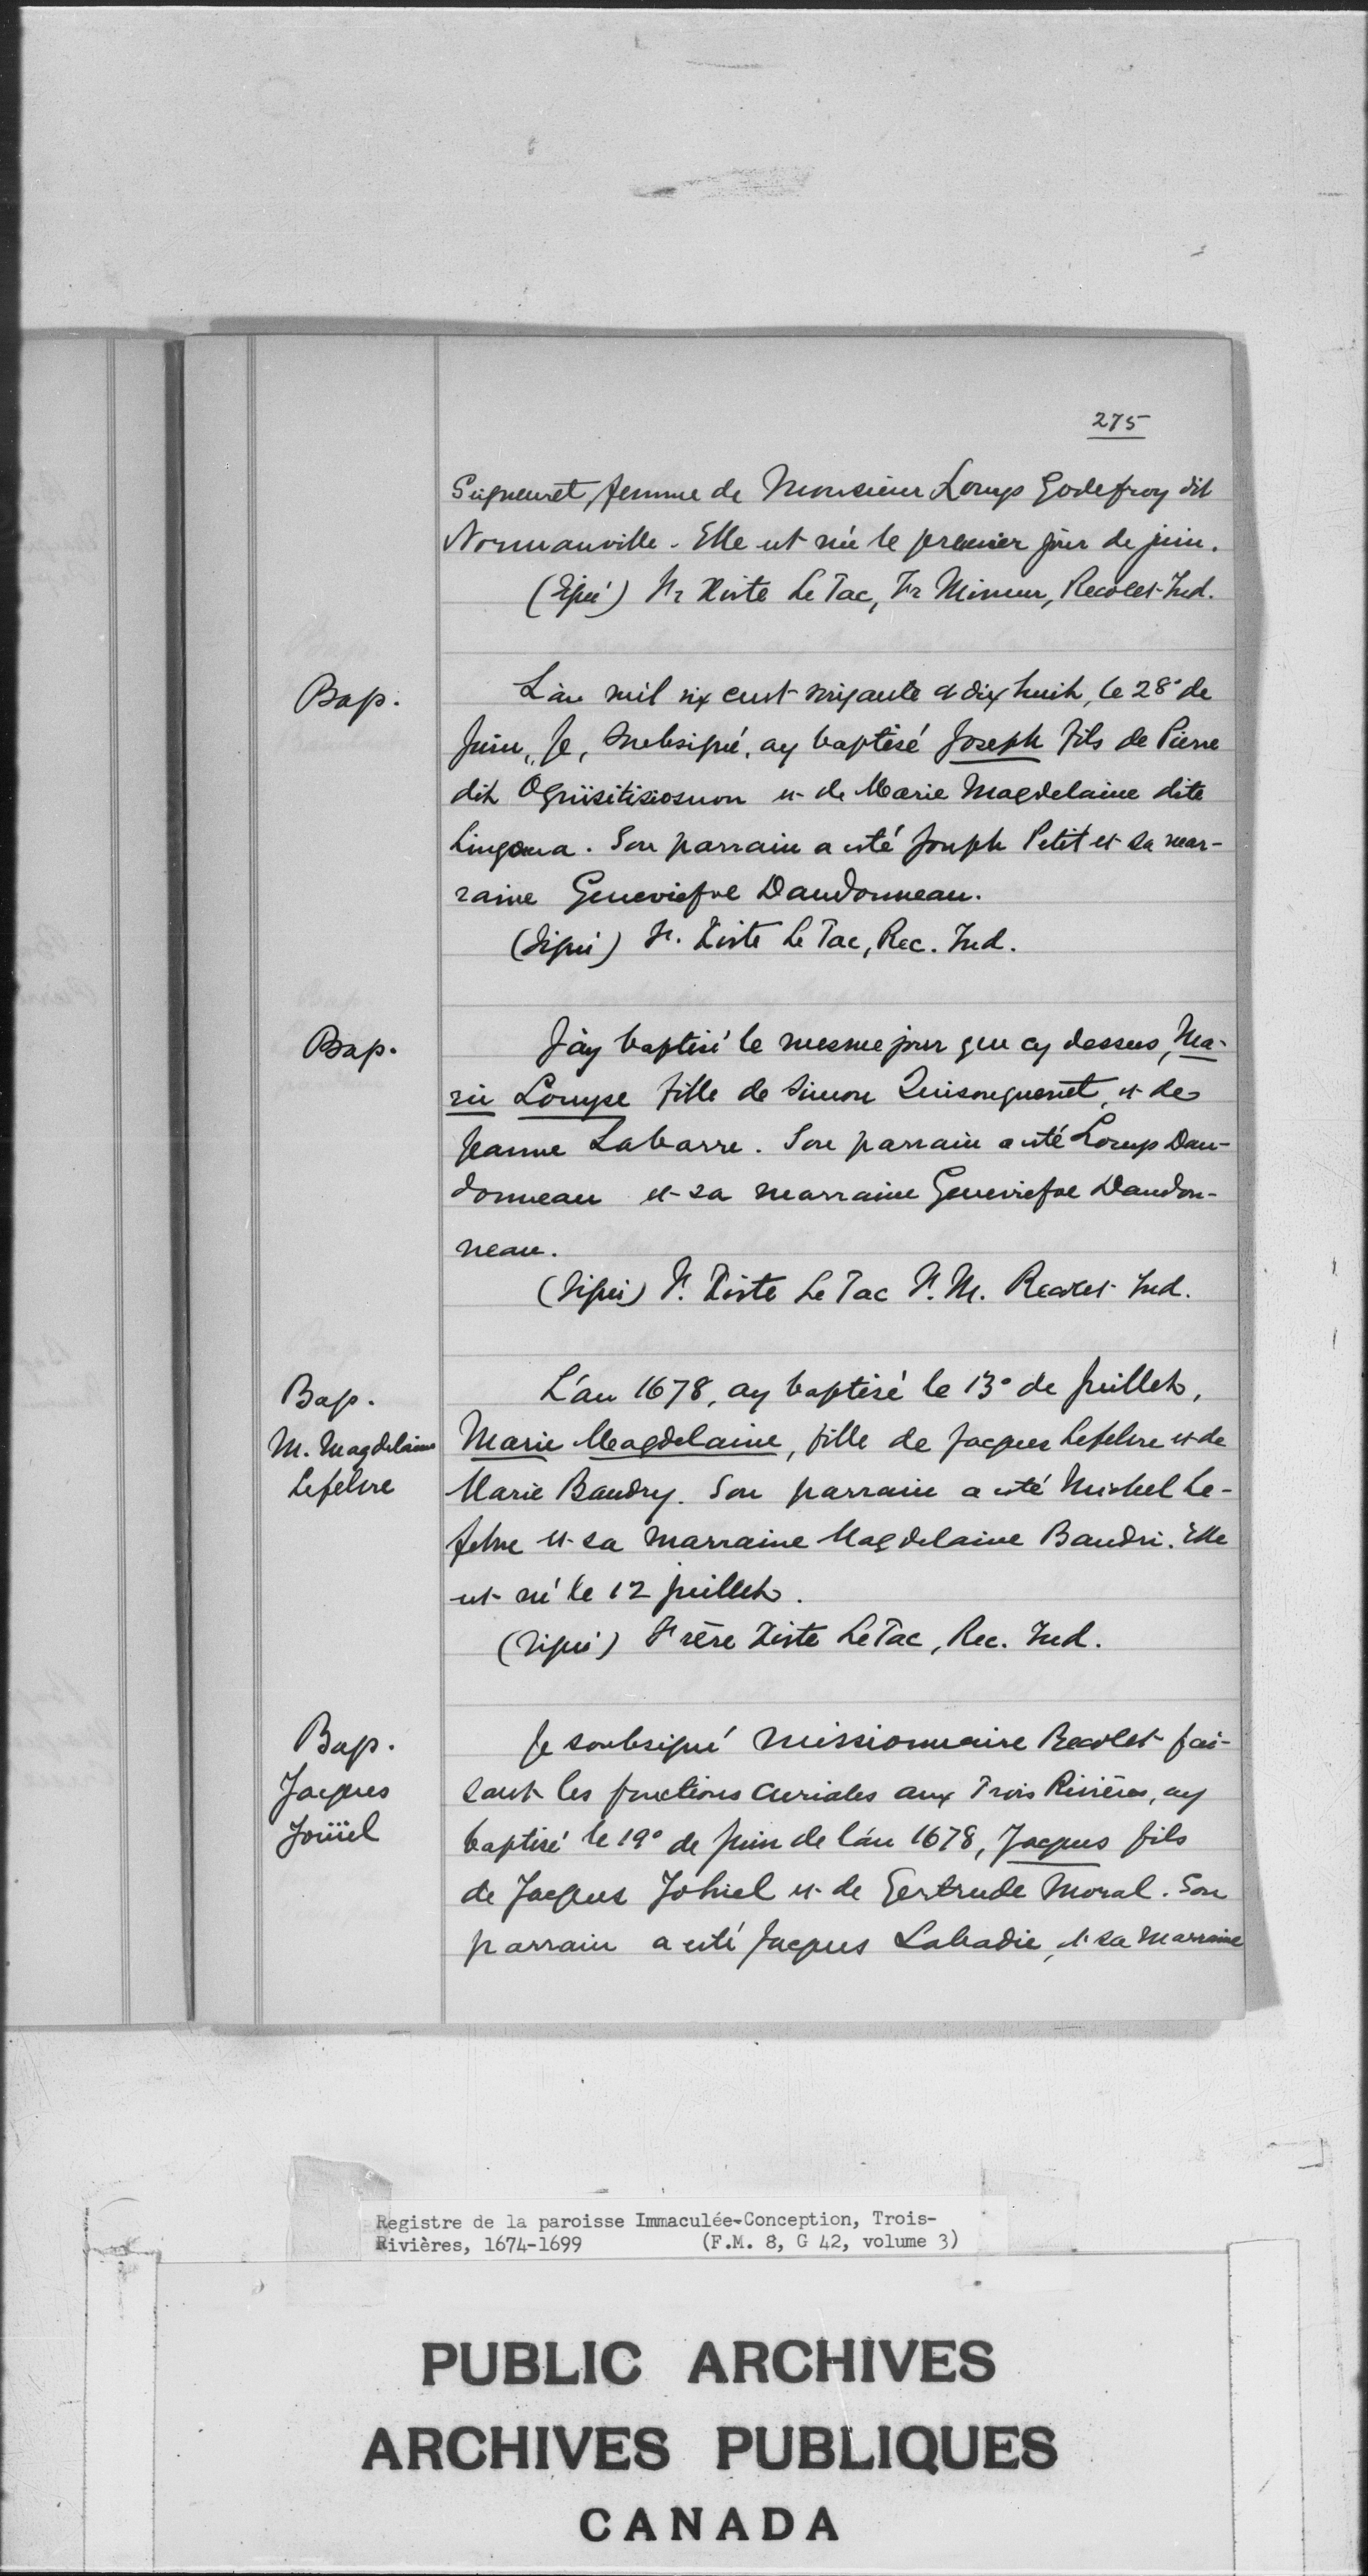 275
Seigneuret, femme de Monsieur Louys Godefroy dit
Normanville. Elle est née le premier jour de juin.
(Signé) Fr Xiste Le Tac, Fr Mineur, Recolet Ind.
Bap.
L'an mil six cent soixante et dix huit, le 28° de
Juin, Je, Subsigné, ay baptisé Joseph fils de Pierre
dit et de Marie Magdelaine dite
. Son parrain a esté Joseph Petit et sa mar-
raine Geneviefve Dandonneau.
(Signé) F. Xiste Le Tac, Rec. Ind.
Bap.
J'ay baptisé le mesme jour que cy dessus, Ma-
rie Louyse fille de Simon et de
Jeanne Labarre. Son parrain a esté Louys Dan-
donneau et sa marraine Geneviefve Dandon-
neau.
(Signé) F. Xiste Le Tac F. M. Recolet Ind.
Bap.
M. Magdelaine
Lefebvre
L'an 1678, ay baptisé le 13° de Juillet,
Marie Magdelaine, fille de Jacques Lefebvre et de
Marie Baudry. Son parrain a esté Michel Le-
febvre et sa marraine Magdelaine Baudri. Elle
est né le 12 juillet.
(Signé) Frère Xiste Le Tac, Rec. Ind.
Bap.
Jacques
Joüiel
Je soubsigné missionnaire Recolet fai-
sant les fonctions curiales aux Trois Rivières, ay
baptisé le 19° de Juin de l'an 1678, Jacques fils
de Jacques Johiel et de Gertrude Moral. Son
parrain a esté Jacques Labadie, et sa marraine
Registre de la paroisse Immaculée-Conception, Trois-
Rivières, 1674-1699 (F.M. 8, G 42, volume 3)
PUBLIC ARCHIVES
ARCHIVES PUBLIQUES
CANADA